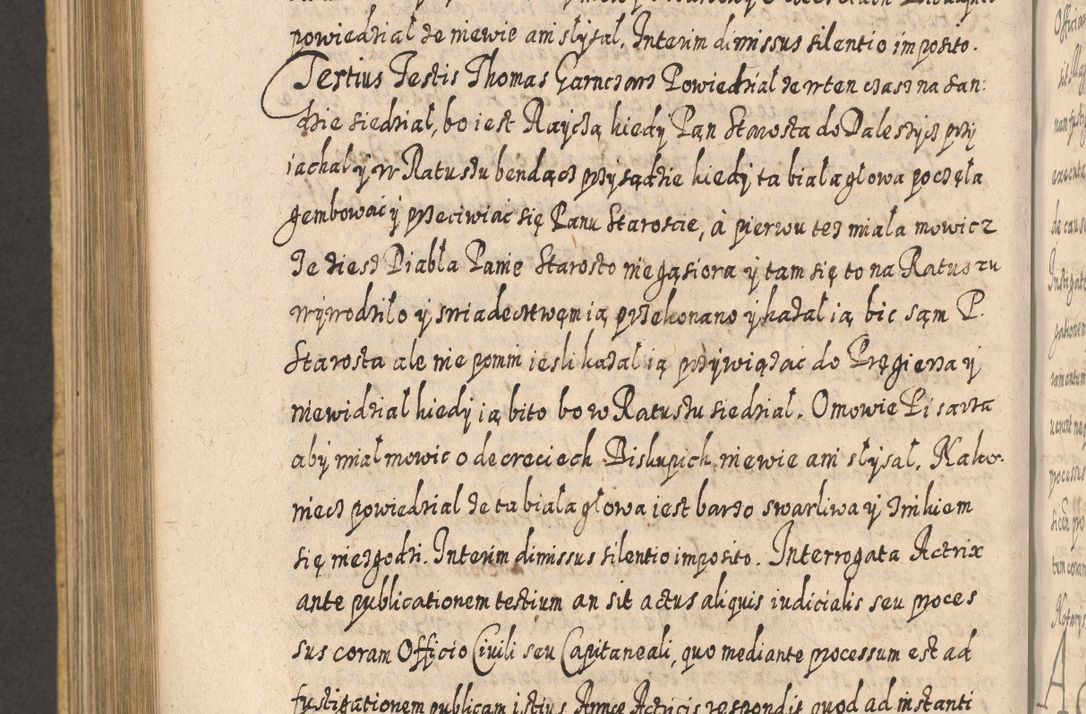 powiedział ze niewie ani słysał. Interim dimissus silentio imposito.
Tertius Testis Thomas Garnczarz Powiedział ze wten czasz na San:
dzie siedział, bo iest Rayczą kiedy Pan Starosta do Daleszycz przy
iachał ÿ w Ratuszu bendącz przysądzie kiedy ta białagłowa poczęła
gembować ÿ przeciwiać się Panu Staroscie, à pierwu tesz miała mowicz
Ze ziesz Diabła Panie Starosto niegąsiora ÿ tam się to na Ratuszu
wÿwodziło ÿ swiadectwem ią przekonano ÿ kazał ią bic sąm P.
Starosta ale nie pomni iesli kazał ią przÿwiązac do Pręgierza ÿ
niewidział kiedy ią bito bo w Ratuszu siedział. Omowie Pisarza
aby miał mowic o decreciech Biskupich niewie ani słysał. Nako-
niecz powiedział ze ta białagłowa iest barzo swarliwa ÿ znikiem
się niezgodzi. Interim dimissus silentio imposito. Interrogata Actrix
ante publicationem testium an sit actus aliquis iudicialis seu proces
sus coram Officio Ciuili seu Capitaneali, quo mediante processum est ad
fustigationem publicam istius Annæ Actricis respondit quod ad instanti
Officia
de causa
Instigato
tum coram
Notarÿ